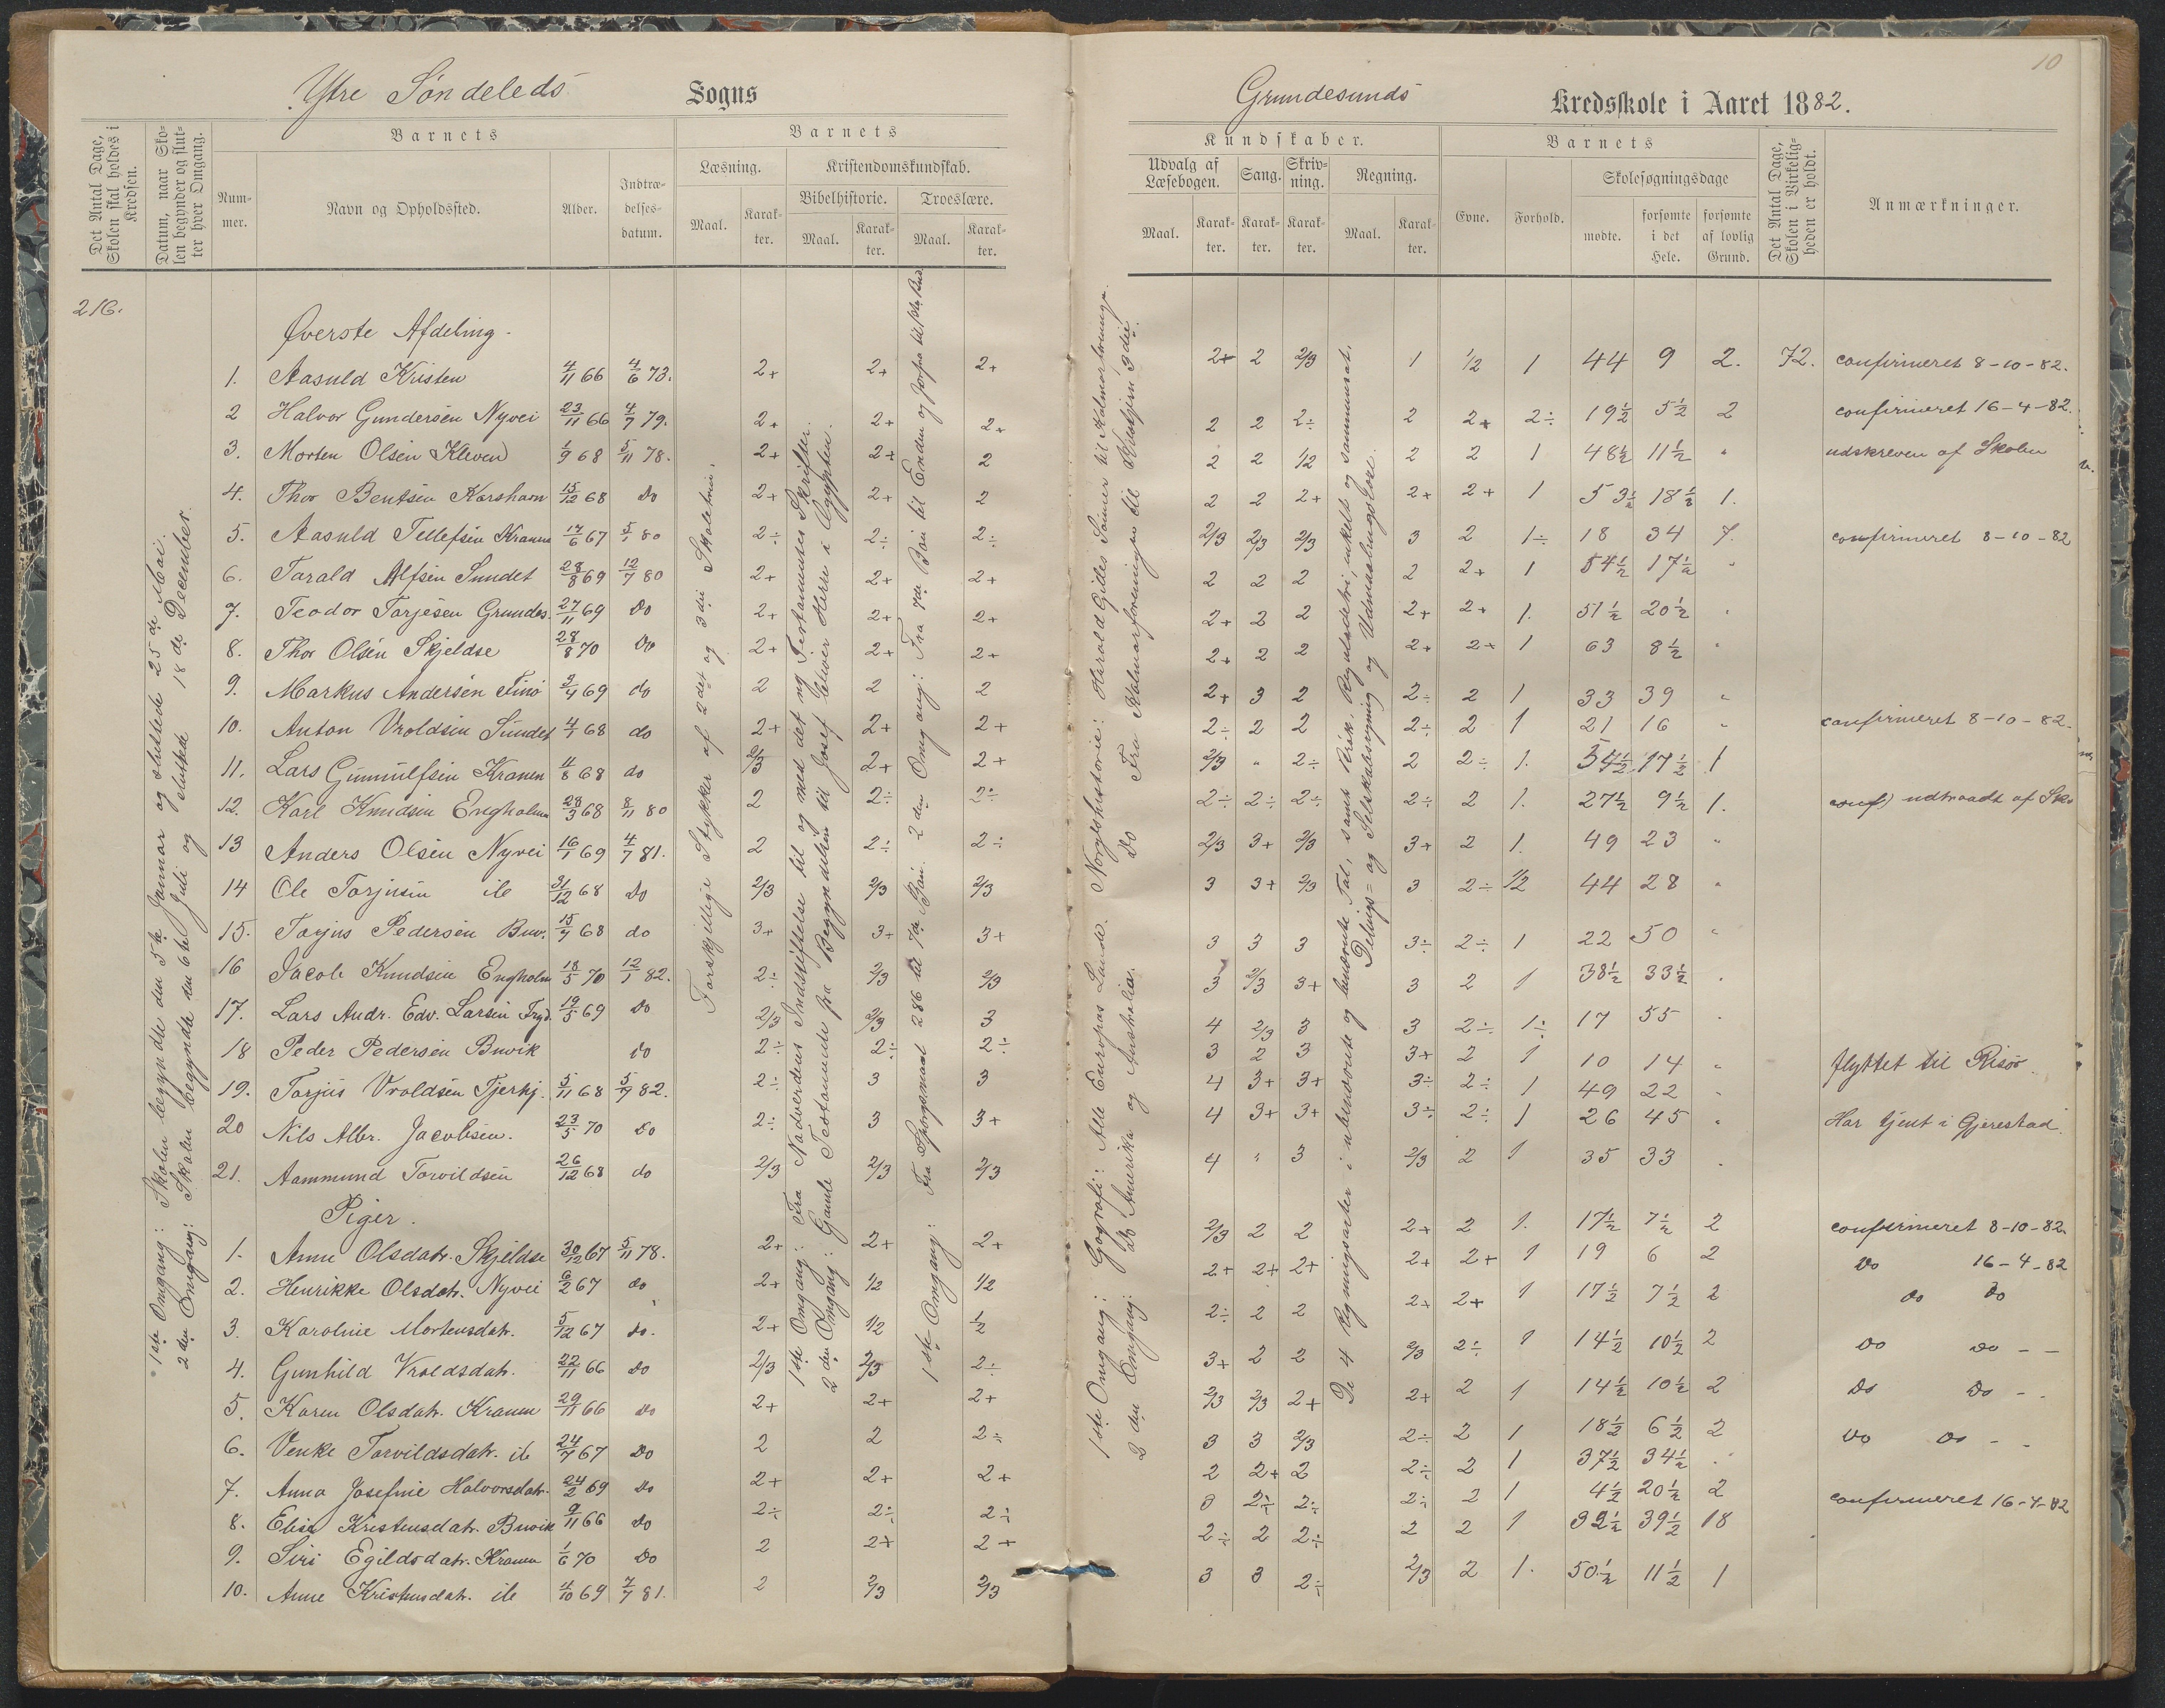 Ytre Søndeleds Sogns
Det Antal Dage, Skolen skal holdes i Kredsen.
Datum, naar Skolen begynder og slutter hver Omgang.
Barnets
Nummer.
Navn og Opholdssted.
Alder.
Indtrædelsesdatum.
Barnets
Læsning.
Kristendomskundskab.
Bibelhistorie.
Troeslære.
Maal. Karakter. Maal. Karakter. Maal. Karakter.
216.
1ste Omgang: Skolen begyndte den 5te Januar og sluttede 25de Mai.
2den Omgang: Skolen begyndte den 6te Juli og sluttede 18de December.
Forskjellige Stykker af 2det og 3die Skoletrin.
1ste Omgang: Fra Nadverdens Indstiftelse til og med det ny Testamentes Skrifter.
2den Omgang: Gamle Testamente fra Begyndelsen til Josef bliver Herre i Ægypten.
Øverste Afdeling
1. Aasuld Kristen 4/11 66 4/6 73. 2+ 2+ 2+
2 Halvor Gundersen Nyvei 23/11 66 4/7 79. 2+ 2+ 2+
3. Morten Olsen Kleven 1/9 68 5/11 78. 2+ 2+ 2
4. Thor Bentsen Korshavn 15/12 68 Do 2+ 2+ 2
5. Aasuld Tellefsen Kranen 17/6 67 5/1 80 2÷ 2÷ 2÷
6. Tarald Alfsen Sundet 28/8 69 12/7 80 2+ 2+ 2+
7. Teodor Torjesen Grundes. 27/11 69 Do 2+ 2+ 2+
8. Thor Olsen Skjeldsø 28/8 70 Do 2+ 2+ 2+
9. Markus Andersen Finø 9/4 69 do 2 2 2
10. Anton Vroldsen Sundet 4/1 68 do 2+ 2+ 2+
11. Lars Gunnulfsen Kranen 4/8 68 do 2/3 2+ 2+
12. Karl Knudsen Engholm 28/3 68 8/11 80 2 2÷ 2÷
13 Anders Olsen Nyvei 16/1 69 4/7 81. 2 2÷ 2÷
14 Ole Torjusen ib 31/12 68 Do 2/3 2/3 2/3
15. Torjus Pedersen Buv. 15/7 68 do 3+ 3+ 3+
16 Jacob Knudsen Engholm 18/5 70 12/1 82. 2÷ 2/3 2/3
17. Lars Andr. Edv. Larsen 19/5 69 Do 2/3 2/3 3
18 Peder Pedersen Buvik Do 2÷ 2÷ 2÷
19. Torjus Vroldsen Tjerkj. 5/11 68 5/7 82. 2÷ 3 3
20 Nils Albr. Jacobsen. 23/5 70 Do 2÷ 3 3+
21. Aammund Torvildsen 26/12 68 do 2/3 2/3 2/3
Piger.
1. Anne Olsdatr. Skjeldsø 30/12 67 5/11 78. 2+ 2+ 2+
2. Henrikke Olsdatr. Nyvei 6/2 67 do 2+ 1/2 1/2
3. Karoline Mortensdatr. 5/12 67 do. 2+ 1/2 1/2
4. Gunhild Vroldsdatr. 22/11 66 Do 2/3 2/3 2÷
5. Karen Olsdatr. Kranen 29/11 66 Do 2+ 2+ 2+
6. Venke Torvildsdatr. ib 24/7 67 Do 2 2 2÷
7. Anna Josefine Halvorsdatr. 24/2 69 Do 2+ 2+ 2+
8. Elise Kristensdatr. Buvik 9/11 66 Do 2÷ 2÷ 2÷
9. Siri Egildsdatr. Kranen 1/6 70 Do 2 2+ 2+
10. Anne Kristensdatr. ib 4/10 69 7/7 81. 2 2/3 2/3
10
Grundesunds Kredsskole i Aaret 1882.
Kundskaber.
Udvalg af Læsebogen.
Sang.
Skrivning.
Regning.
Maal. Karakter. Karakter. Karakter. Maal. Karakter.
Barnets
Evne.
Forhold.
Skolesøgningsdage
mødte.
forsømte i det Hele.
forsømte af lovlig Grund.
Det Antal Dage, Skolen i Virkeligheden er holdt.
Anmærkninger.
1ste Omgang: Geografi: Alle Europas Lande. Norgeshistorie: Harald Gilles Sønner til Kalmarforeninge.
2den Omgang: Do Amerika og Australien. Do Fra Kalmarforeningen til Kristjern 3die.
De 4 Regningsarter i ubenævnte og benævnte Tal, samt Prak. Reguladetri, enkelt og sammensat,
Delings= og Selskabsregning og Udmaalingslære.
2+ 2 2/3 1 1/2 1 44 9 2. 72. confirmeret 8-10-82.
2 2 2÷ 2 2+ 2÷ 19½ 5½ 2 confirmeret 16-4-82.
2 2 1/2 2 2 1 48½ 11½ " udskreven af Skolen
2 2 2+ 2+ 2+ 1 53½ 18½ 1.
2/3 2/3 2/3 3 2 1÷ 18 34 7. confirmeret 8-10-82
2 2 2 2 2+ 1 54½ 17½ "
2+ 2 2 2+ 2+ 1. 51½ 20½ "
2+ 2 2 2+ 2+ 1 63 8½ "
2+ 3 2 2÷ 2 1 33 39 "
2÷ 2 2 2÷ 2 1 21 16 " confirmeret 8-10-82.
2/3 " 2÷ 2 2÷ 1. 54½ 17½ 1
2÷ 2÷ 2÷ 2÷ 2 1. 27½ 9½ 1. conf) udtraadt af Sko
2/3 3+ 2/3 3+ 2 1. 49 23 "
3 3+ 2/3 3 2÷ 1/2 44 28 "
3 3 3 3÷ 2÷ 1 22 50 "
3 2/3 3+ 3 2 1 38½ 33½ "
4 2/3 3 3 2÷ 1÷ 17 55 "
3 2 3 3+ 2 1 10 14 " flyttet til Risør.
4 3+ 3+ 3÷ 2÷ 1 49 22 "
4 3+ 3+ 3÷ 2÷ 1 26 45 " Har tjent i Gjerestad.
4 " 3 2/3 2 1 35 33 "
2/3 2 2 2+ 2 1. 17½ 7½ 2 confirmeret 8-10-82.
2+ 2+ 2+ 2+ 2+ 1 19 6 2 Do 16-4-82
2÷ 2 2 2+ 2+ 1 17½ 7½ 2 do do
3+ 2 2 2/3 2÷ 1 14½ 10½ 2 Do Do - -
2/3 2/3 2+ 2+ 2 1 14½ 10½ 2 Do Do - -
3 3 2/3 2÷ 2 1 18½ 6½ 2 Do Do - -
2 2+ 2 2÷ 2 1 37½ 34½ "
3 2÷ 2÷ 2÷ 2 1 4½ 20½ 2 confirmeret 16-4-82
2÷ 2 2÷ 2 2 1 32½ 39½ 18
3 3 2÷ 2/3 2 1. 50½ 11½ 1